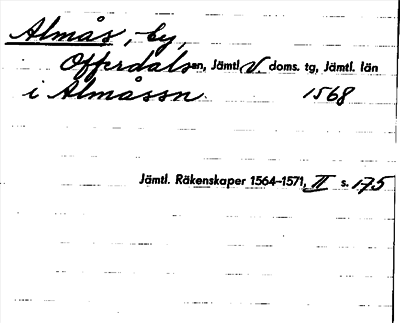 Almås, by,
Offerdalsen, Jämtl. V. doms. tg, Jämtl. län
i Almåssn. 1568
Jämtl. Räkenskaper 1564–1571, II s. 175